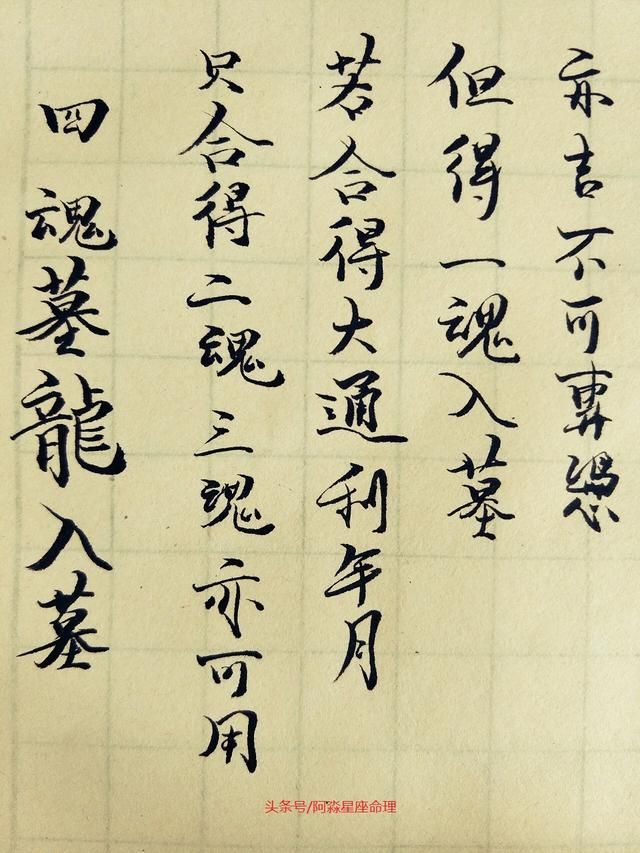 亦吉不可專憑
但得一魂入墓
若合得大通利年月
只合得二魂三魂亦可用
四魂墓龍入墓
头条号/阿淼星座命理